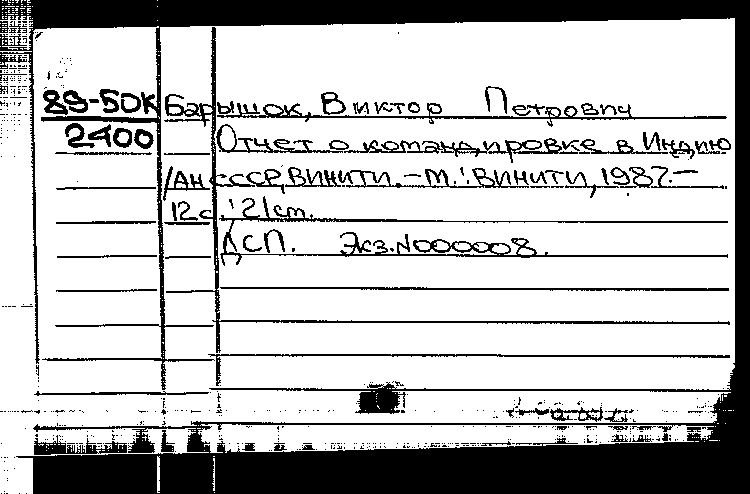 89-50К Барышок, Виктор Петрович
2400 Отчет о командировке в Индию
/АН СССР, ВИНИТИ. - М.: ВИНИТИ, 1987. -
12с.; 21cm.
ДСП. Экз. N000008.